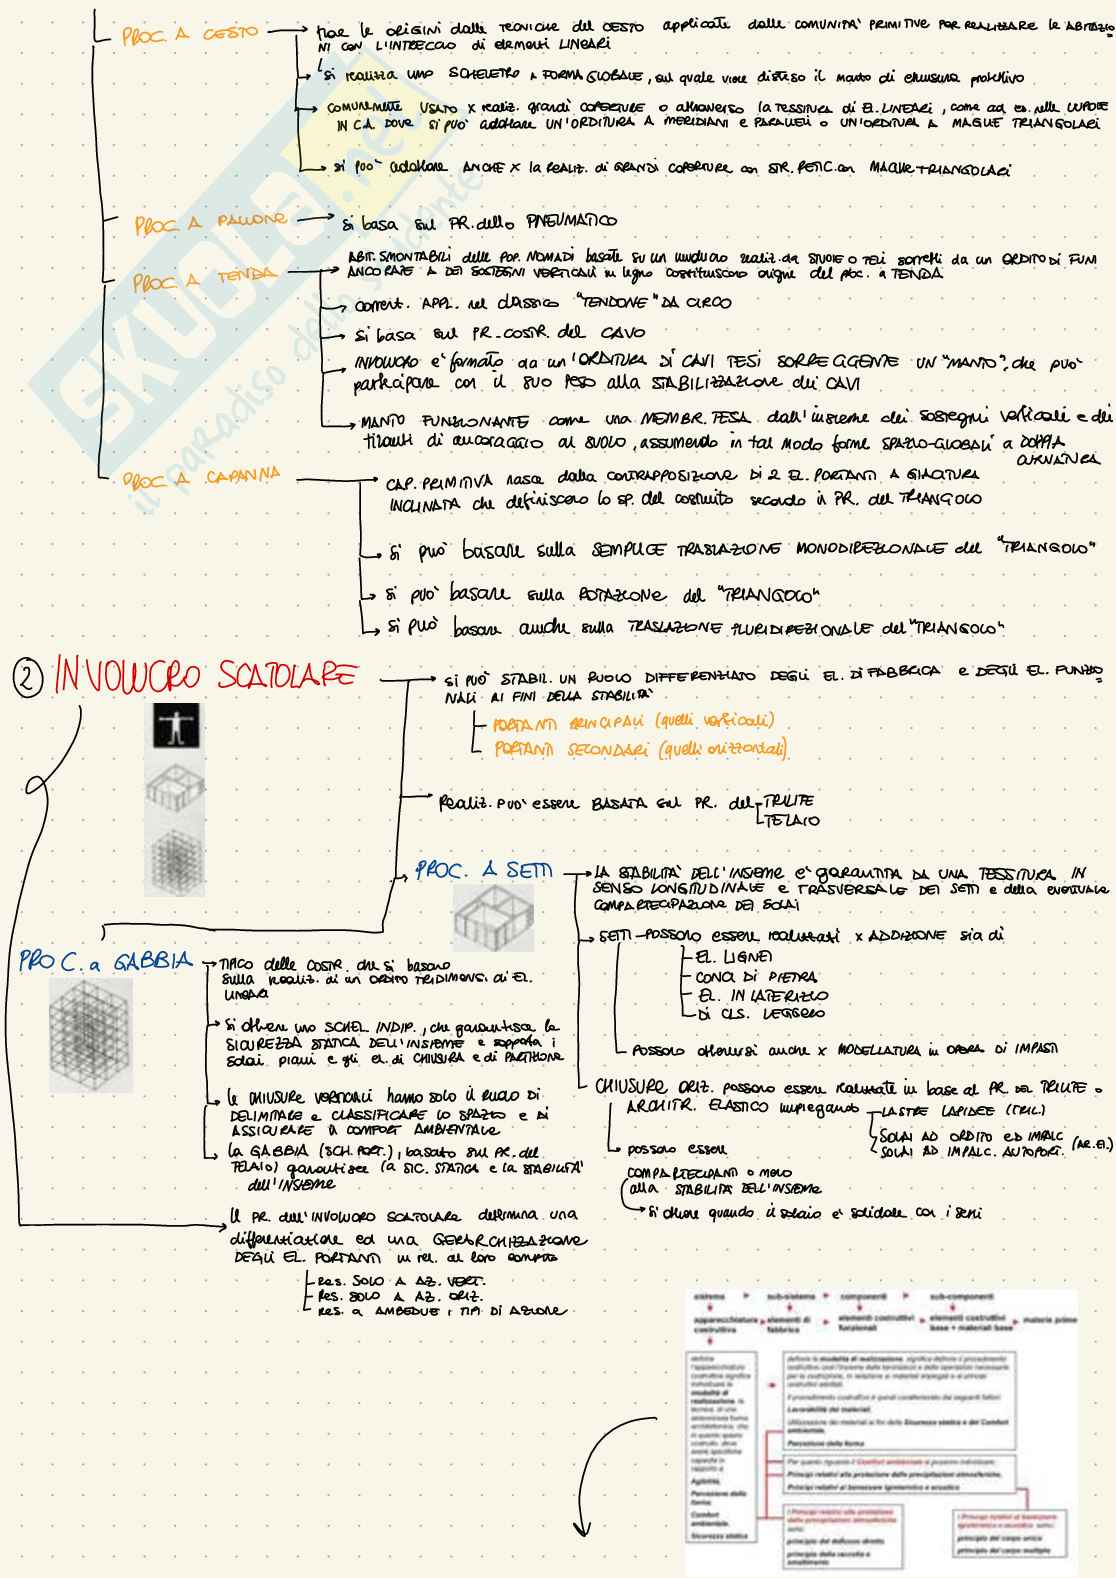 PROC. A CESTO
trae le ORIGINI dalle TECNICHE del CESTO applicate dalle COMUNITA' PRIMITIVE PER REALIZZARE le ABITAZIO
NI CON L'INTRECCIO di elementi LINEARI
si realizza uno SCHELETRO A FORMA GLOBALE, sul quale viene disteso il manto di chiusura protettivo
COMUNEMENTE USATO x realiz. grandi COPERTURE o attraverso la TESSITURA di EL. LINEARI, come ad es. nelle CUPOLE
IN C.A. DOVE si può adottare UN'ORDITURA A MERIDIANI e PARALLELI o UN'ORDITURA A MAGLIE TRIANGOLARI
si può adottare ANCHE x la REALIZ. di GRANDI COPERTURE con STR. RETIC. con MAGLIE TRIANGOLARI
PROC. A PALLONE
si basa sul PR. dello PNEUMATICO
PROC. A TENDA
ABIT. SMONTABILI delle POP. NOMADI basate su un involucro realiz. da STUOIE O TELI sorretti da un ORDITO DI FUNI
ANCORATE A DEI SOSTEGNI VERTICALI in legno costituiscono origine del proc. a TENDA
corrent. APPL. nel classico "TENDONE" DA CIRCO
si basa sul PR. COSTR. del CAVO
INVOLUCRO e' formato da un'ORDITURA DI CAVI TESI SORREGGENTE UN "MANTO", che può
partecipare con il suo PESO alla STABILIZZAZIONE dei CAVI
MANTO FUNZIONANTE come una MEMBR. TESA dall'insieme dei sostegni verticali e dei
tiranti di ancoraggio al suolo, assumendo in tal modo forme SPAZIO-GLOBALI a DOPPIA
CURVATURA
PROC. A CAPANNA
CAP. PRIMITIVA nasce dalla CONTRAPPOSIZIONE DI 2 EL. PORTANTI A GIACITURA
INCLINATA che definiscono lo SP. del costruito secondo il PR. del TRIANGOLO
si può basare sulla SEMPLICE TRASLAZIONE MONODIREZIONALE del "TRIANGOLO"
si può basare sulla ROTAZIONE del "TRIANGOLO"
si può basare anche sulla TRASLAZIONE PLURIDIREZIONALE del "TRIANGOLO"
2 INVOLUCRO SCATOLARE
si può STABIL. UN RUOLO DIFFERENZIATO DEGLI EL. DI FABBRICA e DEGLI EL. FUNZIO
NALI AI FINI DELLA STABILITÀ
PORTANTI PRINCIPALI (quelli verticali)
PORTANTI SECONDARI (quelli orizzontali)
Realiz. può essere BASATA sul PR. del TRILITE
TELAIO
PROC. A SETTI
LA STABILITÀ DELL'INSIEME e' garantita DA UNA TESSITURA IN
SENSO LONGITUDINALE e TRASVERSALE DEI SETTI e della eventuale
COMPARTECIPAZIONE DEI SOLAI
SETTI POSSONO essere realizzati x ADDIZIONE sia di
EL. LIGNEI
CONCI DI PIETRA
EL. IN LATERIZIO
DI CLS. LEGGERO
POSSONO ottenersi anche x MODELLATURA in OPERA DI IMPASTI
CHIUSURE ORIZ. possono essere realizzate in base al PR. DEL TRILITE o
ARCHITR. ELASTICO impiegando LASTRE LAPIDEE (TRIL.)
SOLAI AD ORDITO ED IMPALC.
SOLAI AD IMPALC. AUTOPORT. (AR. El.)
possono essere
COMPARTECIPANTI o meno
alla STABILITÀ DELL'INSIEME
si ottiene quando il solaio e' solidale con i setti
PROC. a GABBIA
TIPICO delle COSTR. che si basano
sulla realiz. di un ORDITO TRIDIMENS. di EL.
LINEARI
si ottiene uno SCHEL. INDIP., che garantisce la
SICUREZZA STATICA DELL'INSIEME e supporta i
solai piani e gli el. di CHIUSURA e di PARTIZIONE
le CHIUSURE VERTICALI hanno solo il RUOLO DI
DELIMITARE e CLASSIFICARE LO SPAZIO e DI
ASSICURARE IL COMFORT AMBIENTALE
la GABBIA (SCH. PORT.), basato sul PR. del
TELAIO) garantisce la SIC. STATICA e la STABILITÀ
dell'INSIEME
Il PR. dell'INVOLUCRO SCATOLARE determina una
differentiazione ed una GERARCHIZZAZIONE
DEGLI EL. PORTANTI in rel. al loro compito
Res. SOLO A AZ. VERT.
Res. SOLO A AZ. ORIZ.
Res. a AMBEDUE i TIPI DI AZIONE
sistema sub-sistema componenti sub-componenti
apparecchiatura costruttiva
elementi di fabbrica
elementi costruttivi funzionali
elementi costruttivi base + materiali base
materie prime
definire la modalità di realizzazione, significa definire il procedimento
Lavorabilità dei materiali.
Utilizzazione dei materiali ai fini della Sicurezza statica e del Comfort
ambientale.
Percezione della forma
Per quanto riguarda il Comfort ambientale si possono individuare:
Principi relativi alla protezione dalle precipitazioni atmosferiche.
Principi relativi al benessere igrotermico e acustico
Agibilità,
Percezione della
forma
Comfort
ambientale.
Sicurezza statica
I Principi relativi alla protezione
dalle precipitazioni atmosferiche
sono:
principio del deflusso diretto
principio della raccolta e
smaltimento
I Principi relativi al benessere
igrotermico e acustico sono:
principio del corpo unico
principio del corpo multiplo
SKUOLA.net
il paradiso dello studente